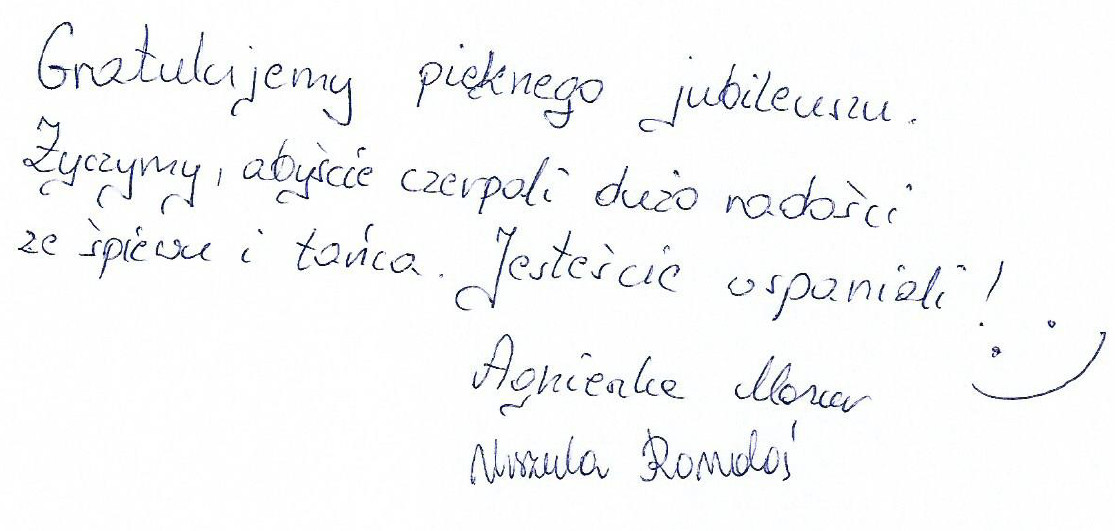 Gratulujemy pięknego jubileuszu.
Życzymy, abyście czerpali dużo radości
ze śpiewu i tańca. Jesteście wspaniali!
Agnieszka
Urszula